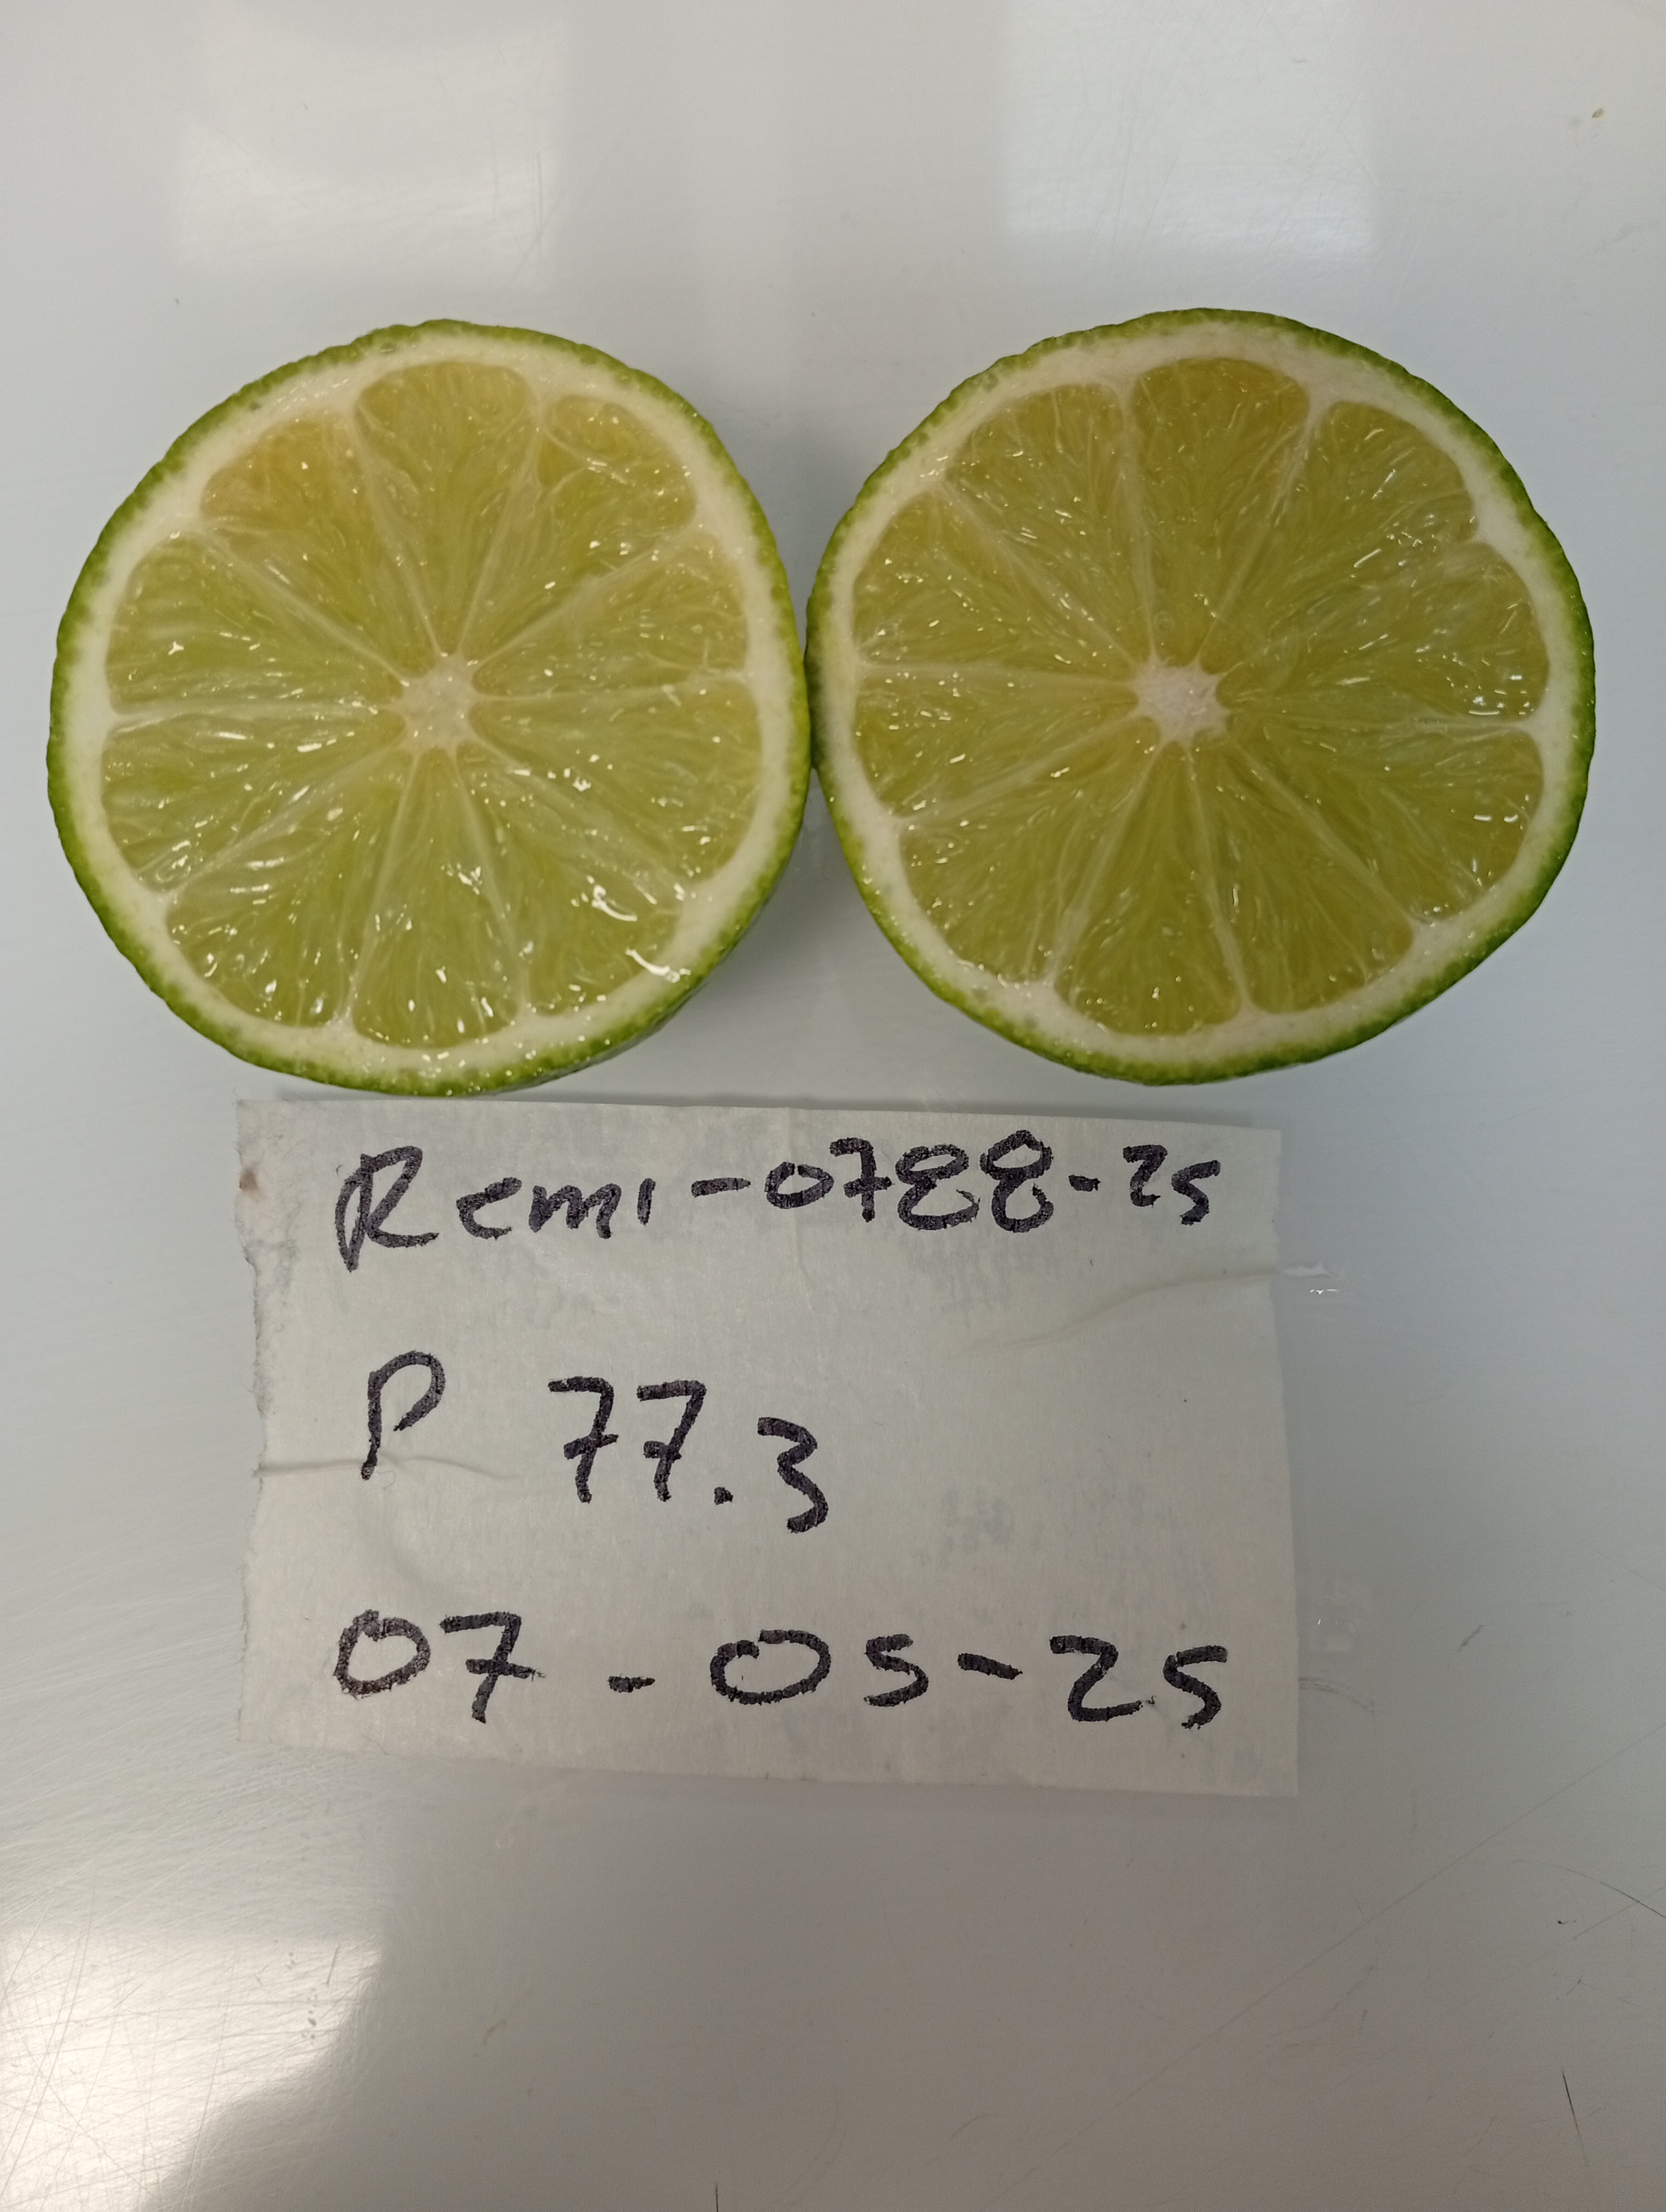 Remi-0788-25
P 77.3
07-05-25